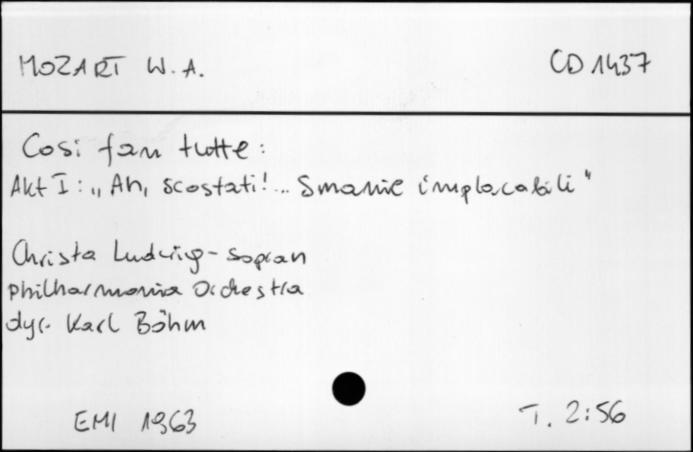 MOZART W.A.
CD 1437
Cosi fan tutte:
Akt I: „Ah, scostati!... Smanie implacabili"
Christa Ludwig - sopran
Philharmonia Orchestra
dyr. Karl Böhm
EMI 1963
T. 2:56